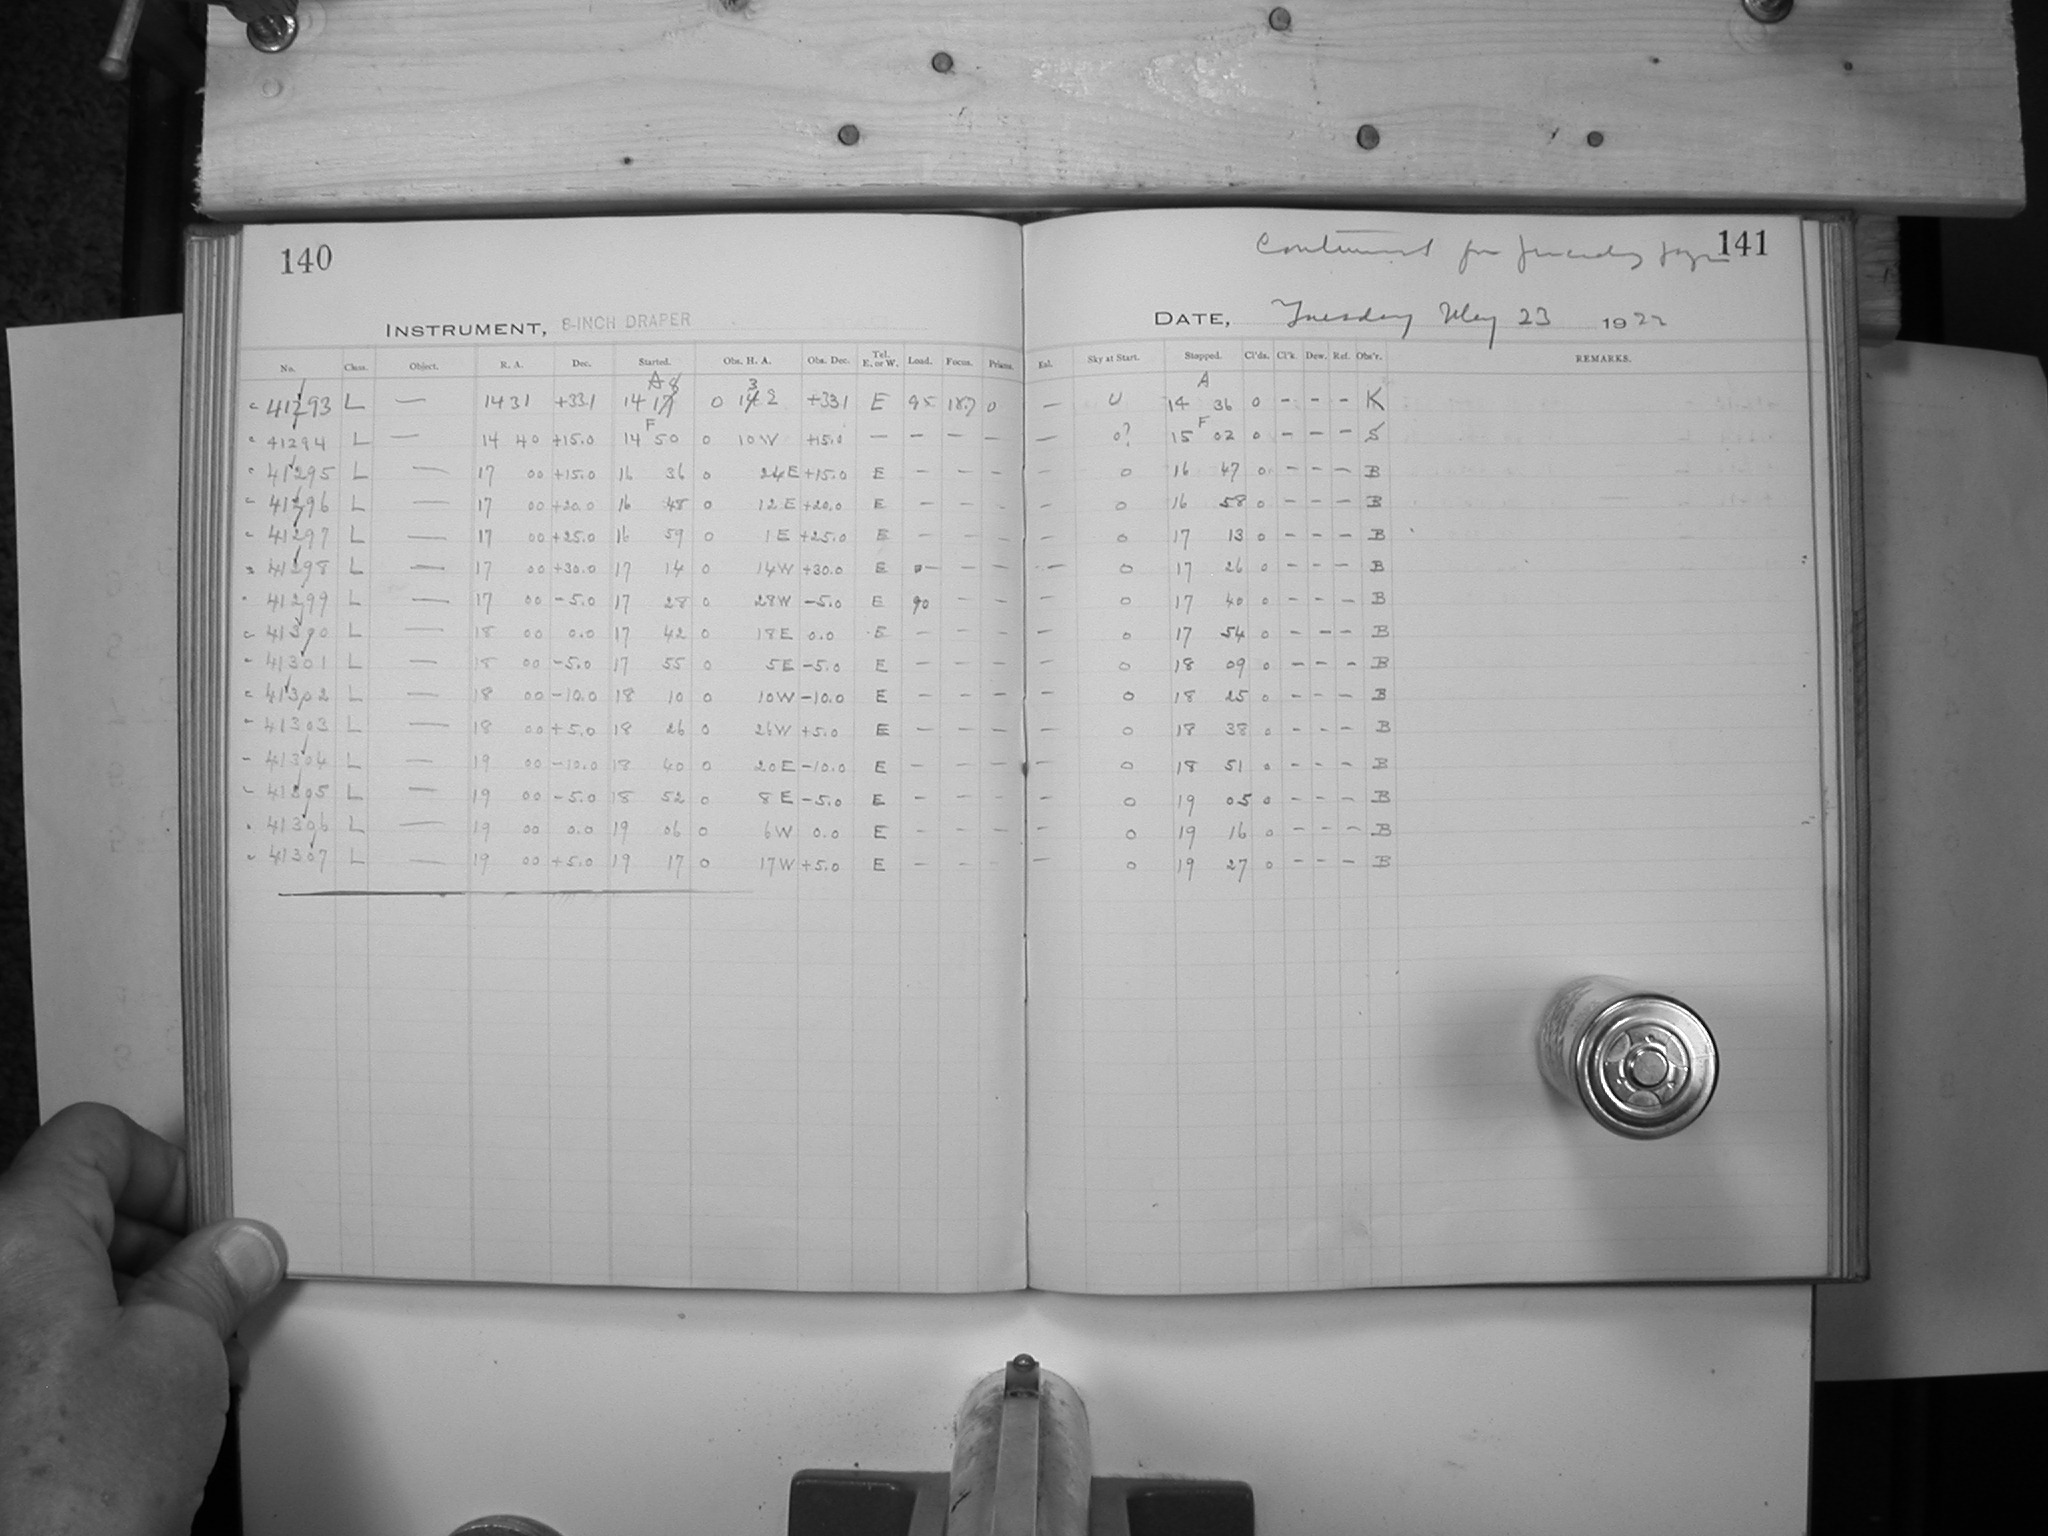 140
Continued fm preceding page 141
INSTRUMENT, 8-INCH DRAPER
DATE, Tuesday May 23 1922
No. Class. Object. R. A. Dec. Started. Obs. H. A. Obs. Dec. Tel. E. or W. Load. Focus. Prisms. Exl. Sky at Start. Stopped. Cl'ds. Cl'k. Dew. Ref. Obs'r. REMARKS.
A 8 3 A
41293 L — 14 31 +33.1 14 17 0 2 +33.1 E 95 18.7 0 — U 14 36 0 - - - K
F F
41294 L — 14 40 +15.0 14 50 0 10W +15.0 — — — — — 0? 15 02 0 - - - S
41295 L — 17 00 +15.0 16 36 0 24E +15.0 E — — — — 0 16 47 0 - - - B
41296 L — 17 00 +20.0 16 48 0 12E +20.0 E — — — — 0 16 58 0 - - - B
41297 L — 17 00 +25.0 16 59 0 1E +25.0 E — — — — 0 17 13 0 - - - B
41298 L — 17 00 +30.0 17 14 0 14W +30.0 E — — — — 0 17 26 0 - - - B
41299 L — 17 00 -5.0 17 28 0 28W -5.0 E 90 — — — 0 17 40 0 - - - B
41300 L — 18 00 0.0 17 42 0 18E 0.0 E — — — — 0 17 54 0 - - - B
41301 L — 18 00 -5.0 17 55 0 5E -5.0 E — — — — 0 18 09 0 - - - B
41302 L — 18 00 -10.0 18 10 0 10W -10.0 E — — — — 0 18 25 0 - - - B
41303 L — 18 00 +5.0 18 26 0 26W +5.0 E — — — — 0 18 38 0 - - - B
41304 L — 19 00 -10.0 18 40 0 20E -10.0 E — — — — 0 18 51 0 - - - B
41305 L — 19 00 -5.0 18 52 0 8E -5.0 E — — — — 0 19 05 0 - - - B
41306 L — 19 00 0.0 19 06 0 6W 0.0 E — — — — 0 19 16 0 - - - B
41307 L — 19 00 +5.0 19 17 0 17W +5.0 E — — — — 0 19 27 0 - - - B